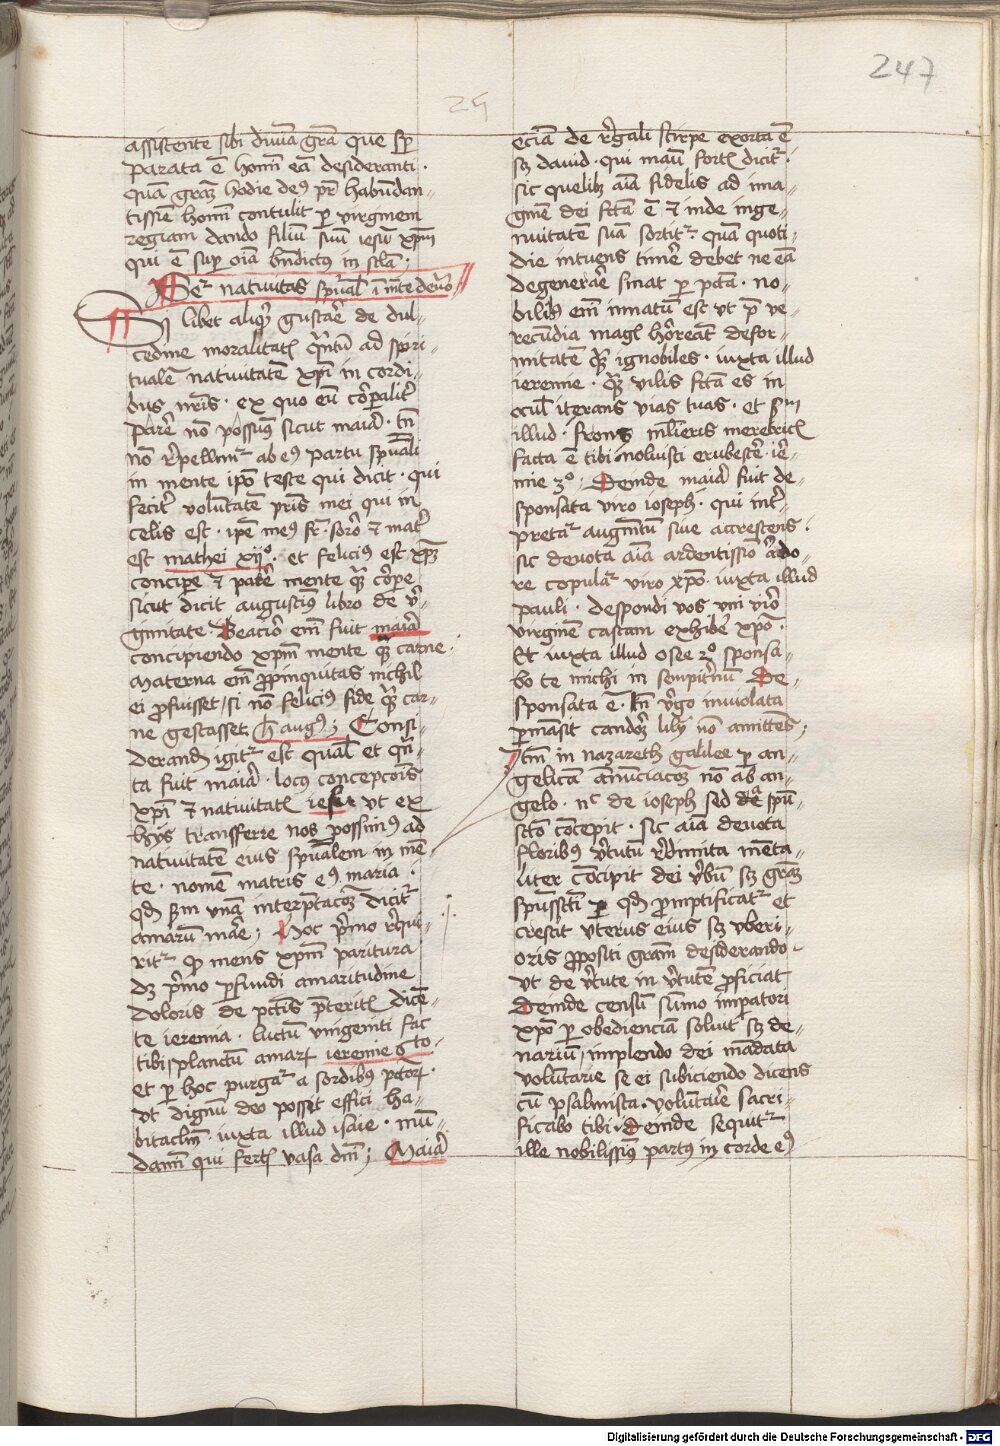 247
25
assistente sibi diuīa grā que sp̄
parata ē homī eā desideranti ·
quā graꝫ hodie deꝰ pr̄ habūdan
tissīe homī contulit ꝑ virginem
regiam dando filiū suū iesū xp̄m
qui ē suꝑ oīa bn̄dictus in scl̄a ;
De natiuitas sp̄ual̄ ī mēte deuo
Si libet aliqͥs gustare de dul
cedine moralitatꝭ qn̄tū ad spiri
tualē natiuitatē xp̄i in cordi
bus nr̄is · ex quo eū corꝑalit̄
parē nō possumꝰ sicut maria · tn̄
nō repellim̄ ab eꝰ partu sp̄uali
in mente ip̄o teste qui dicit · qui
fecit̄ volūtatē pr̄is mei qui in
celis est · ip̄e meꝰ fr̄ · soror ⁊ mat̄
est mathei xijº · et feliciꝰ est xp̄ꝫ
concipe ⁊ parē mente qͣꝫ corꝑe
sicut dicit augustinꝰ libro de v̄
ginitate · Beatior em̄ fuit maria
concipiendo xp̄m mente qͣꝫ carne ·
Materna em̄ ꝓpinquitas nichil
ei ꝓfuisset / si nō feliciꝰ fide qͣꝫ car
ne gestasset h̄ augꝰ ; Consi
derandū igitᷣ est qual̄ et qn̄
ta fuit maria · locꝰ concepcōis
xp̄i ⁊ natiuitatꝭ iesu vt ex
hijs transferre nos possimꝰ ad
natiuitatē eius sp̄ualem in mē
te · nomē matris eꝰ maria ·
qđ sm̄ vnā interp̄tacōꝫ dicit̄
amarū mare ; Hoc pͥmo reqͥ
ritᷣ qꝫ mens xp̄m paritura
dꝫ pͥmo ꝑfundi amaritudine
doloris de pctīs p̄teritꝭ dicē
te ieremia · luctū vnigeniti fac
tibi planctū amarꝝ ieremie 6to ·
et ꝑ hoc purgaᷣ a sordibꝰ pctōꝝ ·
vt dignū deo possit effici ha
bitaclm̄ · iuxta illud isaie · mū
damī qui fertꝭ vasa dn̄i ; Maria
eciā de regali stirpe exorta ē
sꝫ dauid · qui manū fortꝭ dicit̄ ·
sic quelibꝫ aīa fidelis ad ima
ginē dei fctā ē ⁊ inde inge
nuitatē suā sortit̄ · quā quoti
die intuens timē debet ne eā
degenerare sinat ꝑ pctā · no
bilibꝰ em̄ innatū est vt p̄ ve
recūdia magꝭ horreāt defor
mitatē qͣꝫ ignobiles · iuxta illud
ieremie · qͣꝫ vilis fctā es in
ocul̄ iterans vias tuas · et sm̄
illud · frons mlīeris meretricꝭ
facta ē tibi noluisti erubescē · iere
mie 3º ; Deinde maria fuit de
sponsata viro ioseph · qui int̄
pretaᷣ augmētū siue accrescens ·
sic deuota aīa ardentissīo ardo
re copulaᷣ viro xp̄o · iuxta illud
pauli · despondi vos vni viro
virginē castam exhibē xp̄o ·
Et iuxta illud osee 2º sponsa
bo te michi in sempit̄nū De
sponsata ē · tn̄ v̄go inuiolata
ꝑmāsit candorē lilij nō amittens ;
Itm̄ in nazareth galilee ꝑ an
gelicā anūciacōꝫ nō ab an
gelo · nͨ de ioseph sed de spū
scto cōcepit · sic aīa deuota
floribꝰ v̄tutū redimita mēta
liter cōcipit dei v̄bū sꝫ graꝫ
sp̄ussctī ꝑ qđ p̄mptificatᷣ et
crescit vterus eius sꝫ vberi
oris ꝓpositi gram̄ desiderando
vt de v̄tute in v̄tutē ꝓficiat
Deinde censū sūmo imꝑatori
xp̄o ꝑ obedienciā soluit sꝫ de
nariū / implendo dei mādata
voluntarie se ei subiciendo dicens
cū psalmista · volūtarie sacri
ficabo tibi · Deinde sequit̄
ille nobilissimꝰ partꝰ in corde eꝰ
Digitalisierung gefördert durch die Deutsche Forschungsgemeinschaft - DFG